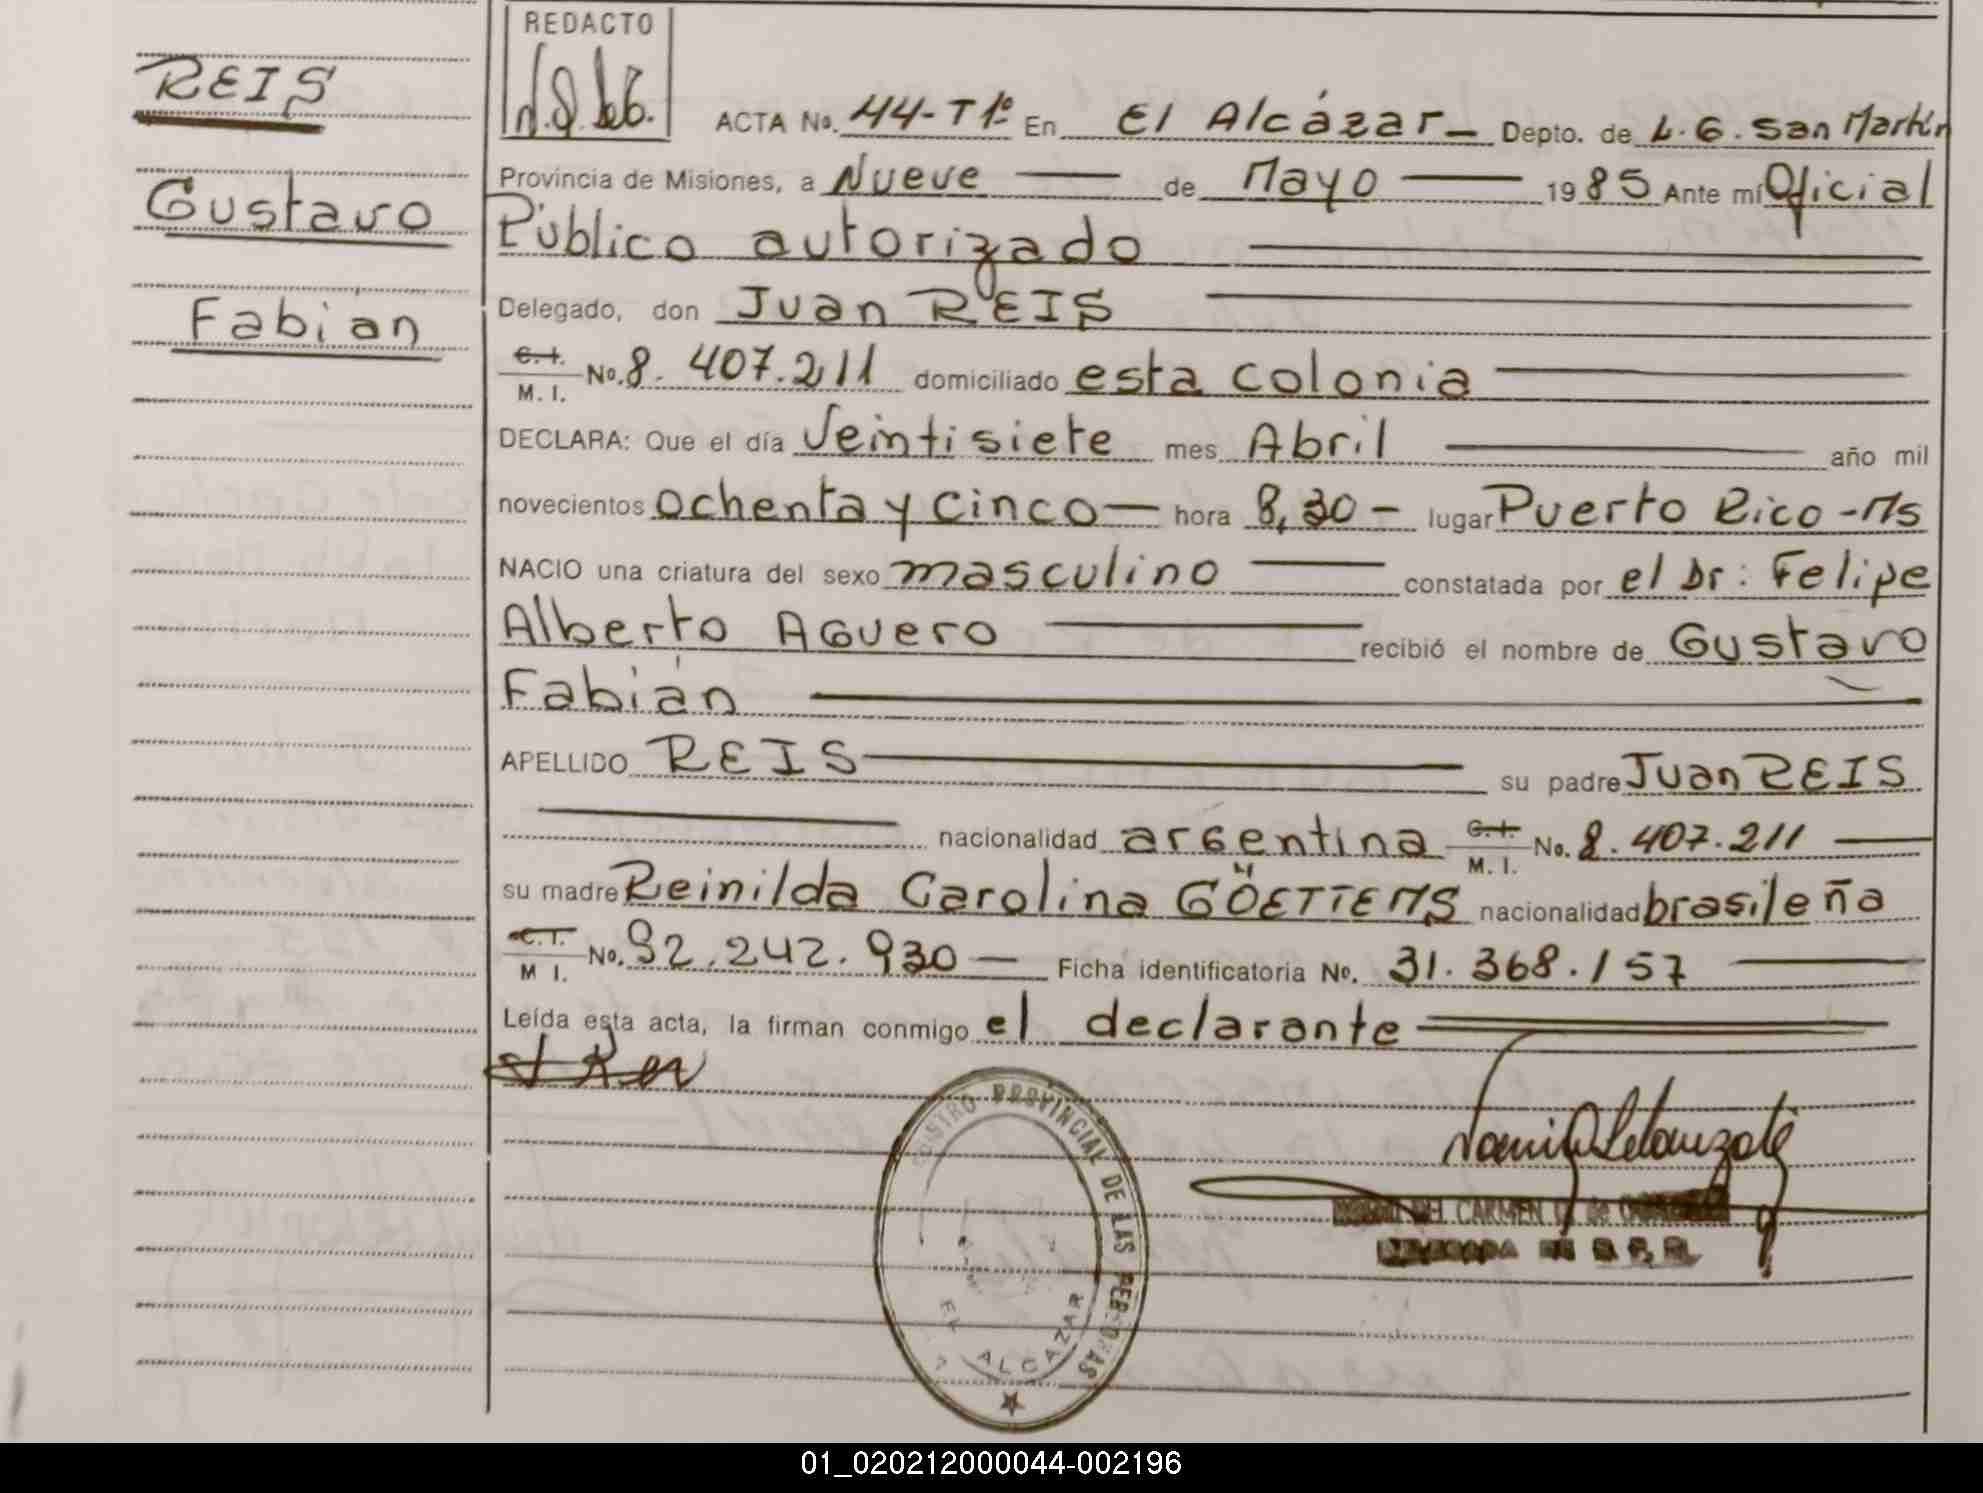 REIS
Gustavo
Fabián
REDACTO
ACTA No. 44-T1º En El Alcázar Depto. de L.G. San Martín
Provincia de Misiones, a Nueve de Mayo 1985 Ante mí Oficial
Público autorizado
Delegado, don Juan REIS
C.I. M.I. No. 8.407.211 domiciliado esta colonia
DECLARA: Que el día Veintisiete mes Abril año mil
novecientos ochenta y cinco hora 8,30 - lugar Puerto Rico - Ms
NACIO una criatura del sexo masculino constatada por el Dr: Felipe
Alberto AGuero recibió el nombre de Gustavo
Fabián
APELLIDO REIS su padre Juan REIS
nacionalidad argentina C.I. M.I. No. 8.407.211
su madre Reinilda Carolina GÖETTEMS nacionalidad brasileña
C.I. M I. No. 92.242.930 Ficha identificatoria No. 31.368.157
Leída esta acta, la firman conmigo el declarante
REGISTRO PROVINCIAL DE LAS PERSONAS
EL ALCAZAR
DEL CARMEN
DELEGADA
01_020212000044-002196